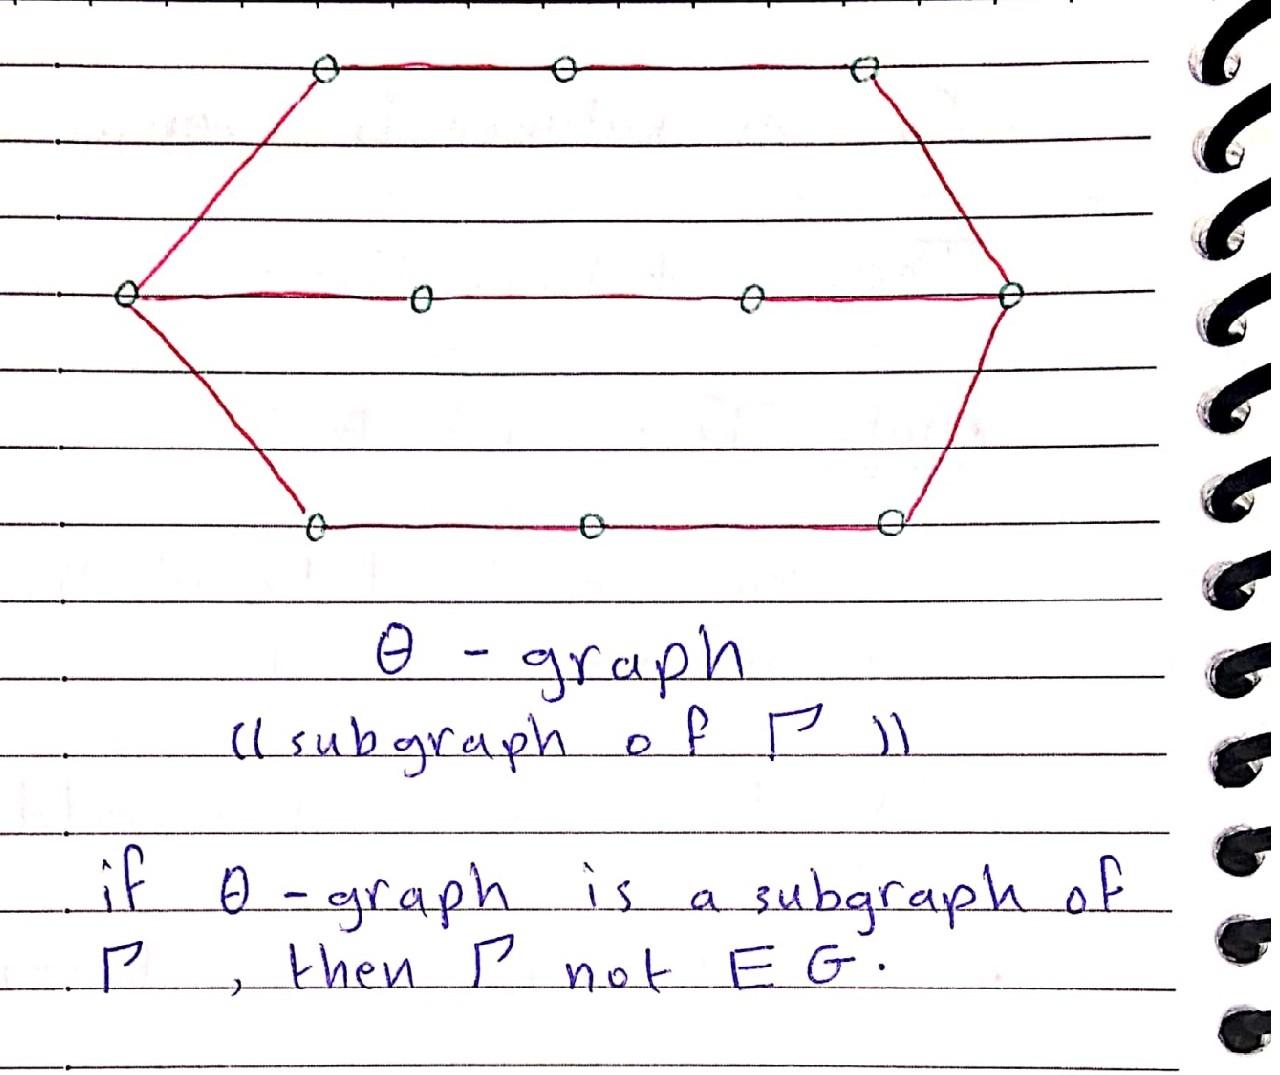 θ - graph
(( subgraph of Γ ))
if θ - graph is a subgraph of
Γ , then Γ not E G.